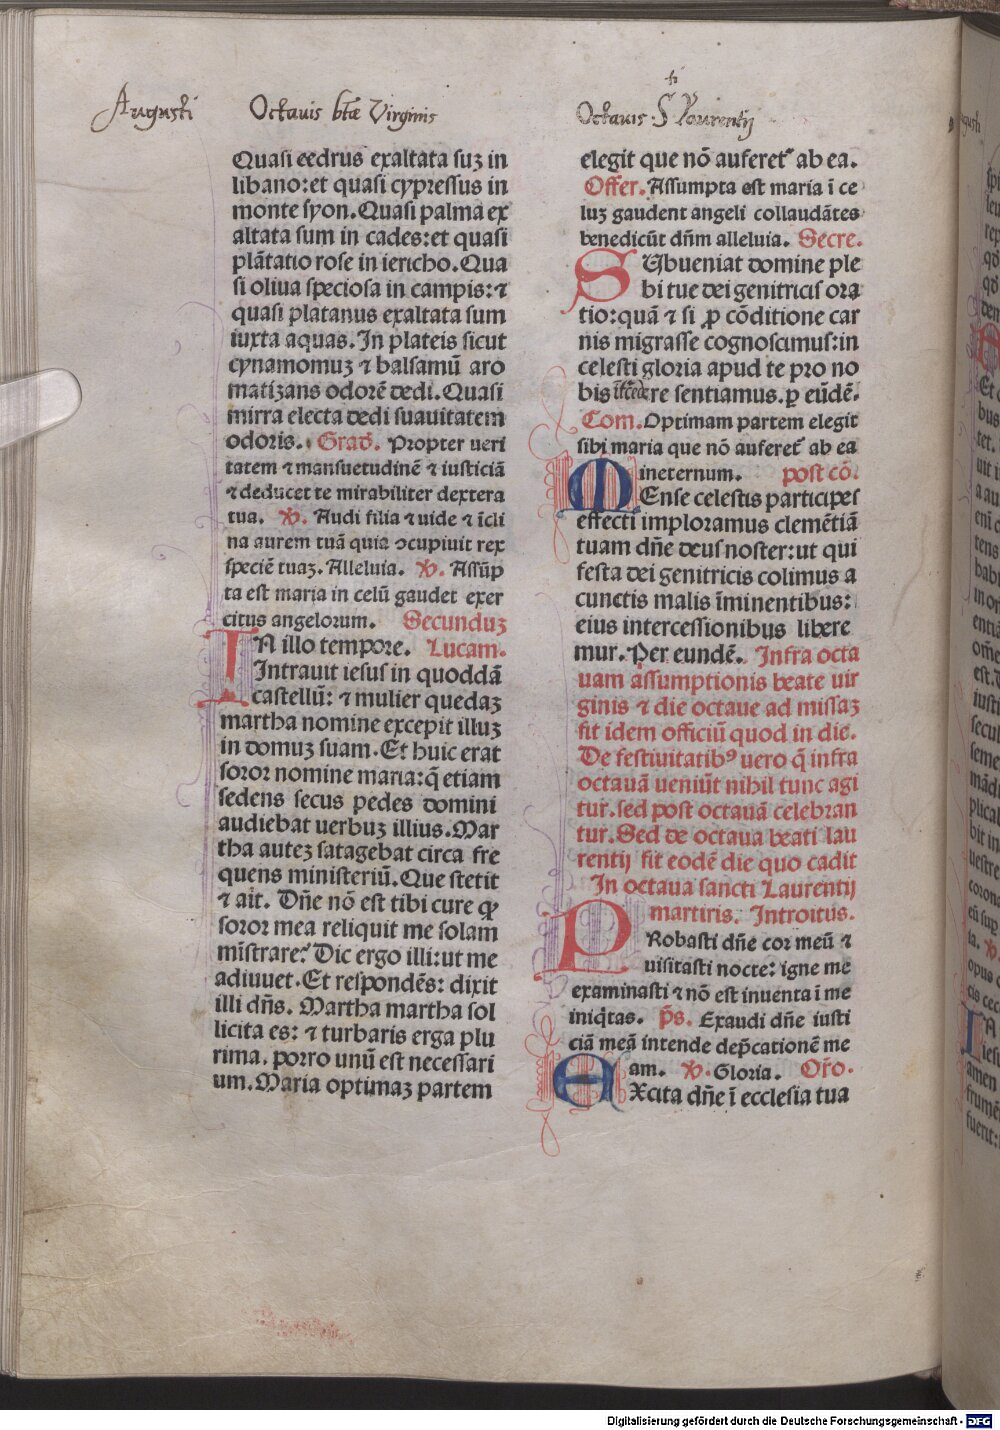 Augusti
Octauis btæ Virginis
Octauis S Laurentij
Quasi cedrus exaltata suꝫ in
libano: et quasi cypressus in
monte syon. Quasi palma ex
altata sum in cades: et quasi
plãtatio rose in iericho. Qua
si oliua speciosa in campis: ⁊
quasi platanus exaltata sum
iuxta aquas. In plateis sicut
cynamomuꝫ ⁊ balsamũ aro
matizans odorẽ dedi. Quasi
mirra electa dedi suauitatem
odoris. Grad̃. Propter ueri
tatem ⁊ mansuetudinẽ ⁊ iusticiã
⁊ deducet te mirabiliter dextera
tua. ℣. Audi filia ⁊ uide ⁊ ĩcli
na aurem tuã quia ↄcupiuit rex
speciẽ tuaꝫ. Alleluia. ℣. Assũp
ta est maria in celũ gaudet exer
citus angelorum. Secunduꝫ
IN illo tempore. Lucam.
Intrauit iesus in quoddã
castellũ: ⁊ mulier quedaꝫ
martha nomine excepit illuꝫ
in domuꝫ suam. Et huic erat
soror nomine maria: q̃ etiam
sedens secus pedes domini
audiebat uerbuꝫ illius. Mar
tha auteꝫ satagebat circa fre
quens ministeriũ. Que stetit
⁊ ait. Dñe nõ est tibi cure ꝙ
soror mea reliquit me solam
mĩstrare? Dic ergo illi: ut me
adiuuet. Et respondẽs: dixit
illi dñs. Martha martha sol
licita es: ⁊ turbaris erga plu
rima. porro unũ est necessari
um. Maria optimaꝫ partem
elegit que nõ auferet᷑ ab ea.
Offer. Assumpta est maria ĩ ce
luꝫ gaudent angeli collaudãtes
benedicũt dñm alleluia. Secre.
SUbueniat domine ple
bi tue dei genitricis ora
tio: quã ⁊ si ꝓ cõditione car
nis migrasse cognoscimus: in
celesti gloria apud te pro no
bis re sentiamus. ꝑ eũdẽ.
Com. Optimam partem elegit
sibi maria que nõ auferet᷑ ab ea
ineternum. post cõ.
MEnse celestis participes
effecti imploramus clemẽtiã
tuam dñe deus noster: ut qui
festa dei genitricis colimus a
cunctis malis ĩminentibus:
eius intercessionibus libere
mur. Per eundẽ. Infra octa
uam assumptionis beate uir
ginis ⁊ die octaue ad missaꝫ
fit idem officiũ quod in die.
De festiuitatibꝰ uero q̃ infra
octauã ueniũt nihil tunc agi
tur. sed post octauã celebran
tur. Sed de octaua beati lau
rentij fit eodẽ die quo cadit
In octaua sancti Laurentij
martiris. Introitus.
PRobasti dñe cor meũ ⁊
uisitasti nocte: igne me
examinasti ⁊ nõ est inuenta ĩ me
iniq̃tas. p̃s. Exaudi dñe iusti
ciã meã intende dep̃cationẽ me
am. ℣. Gloria. Oro.
EXcita dñe ĩ ecclesia tua
Digitalisierung gefördert durch die Deutsche Forschungsgemeinschaft - DFG